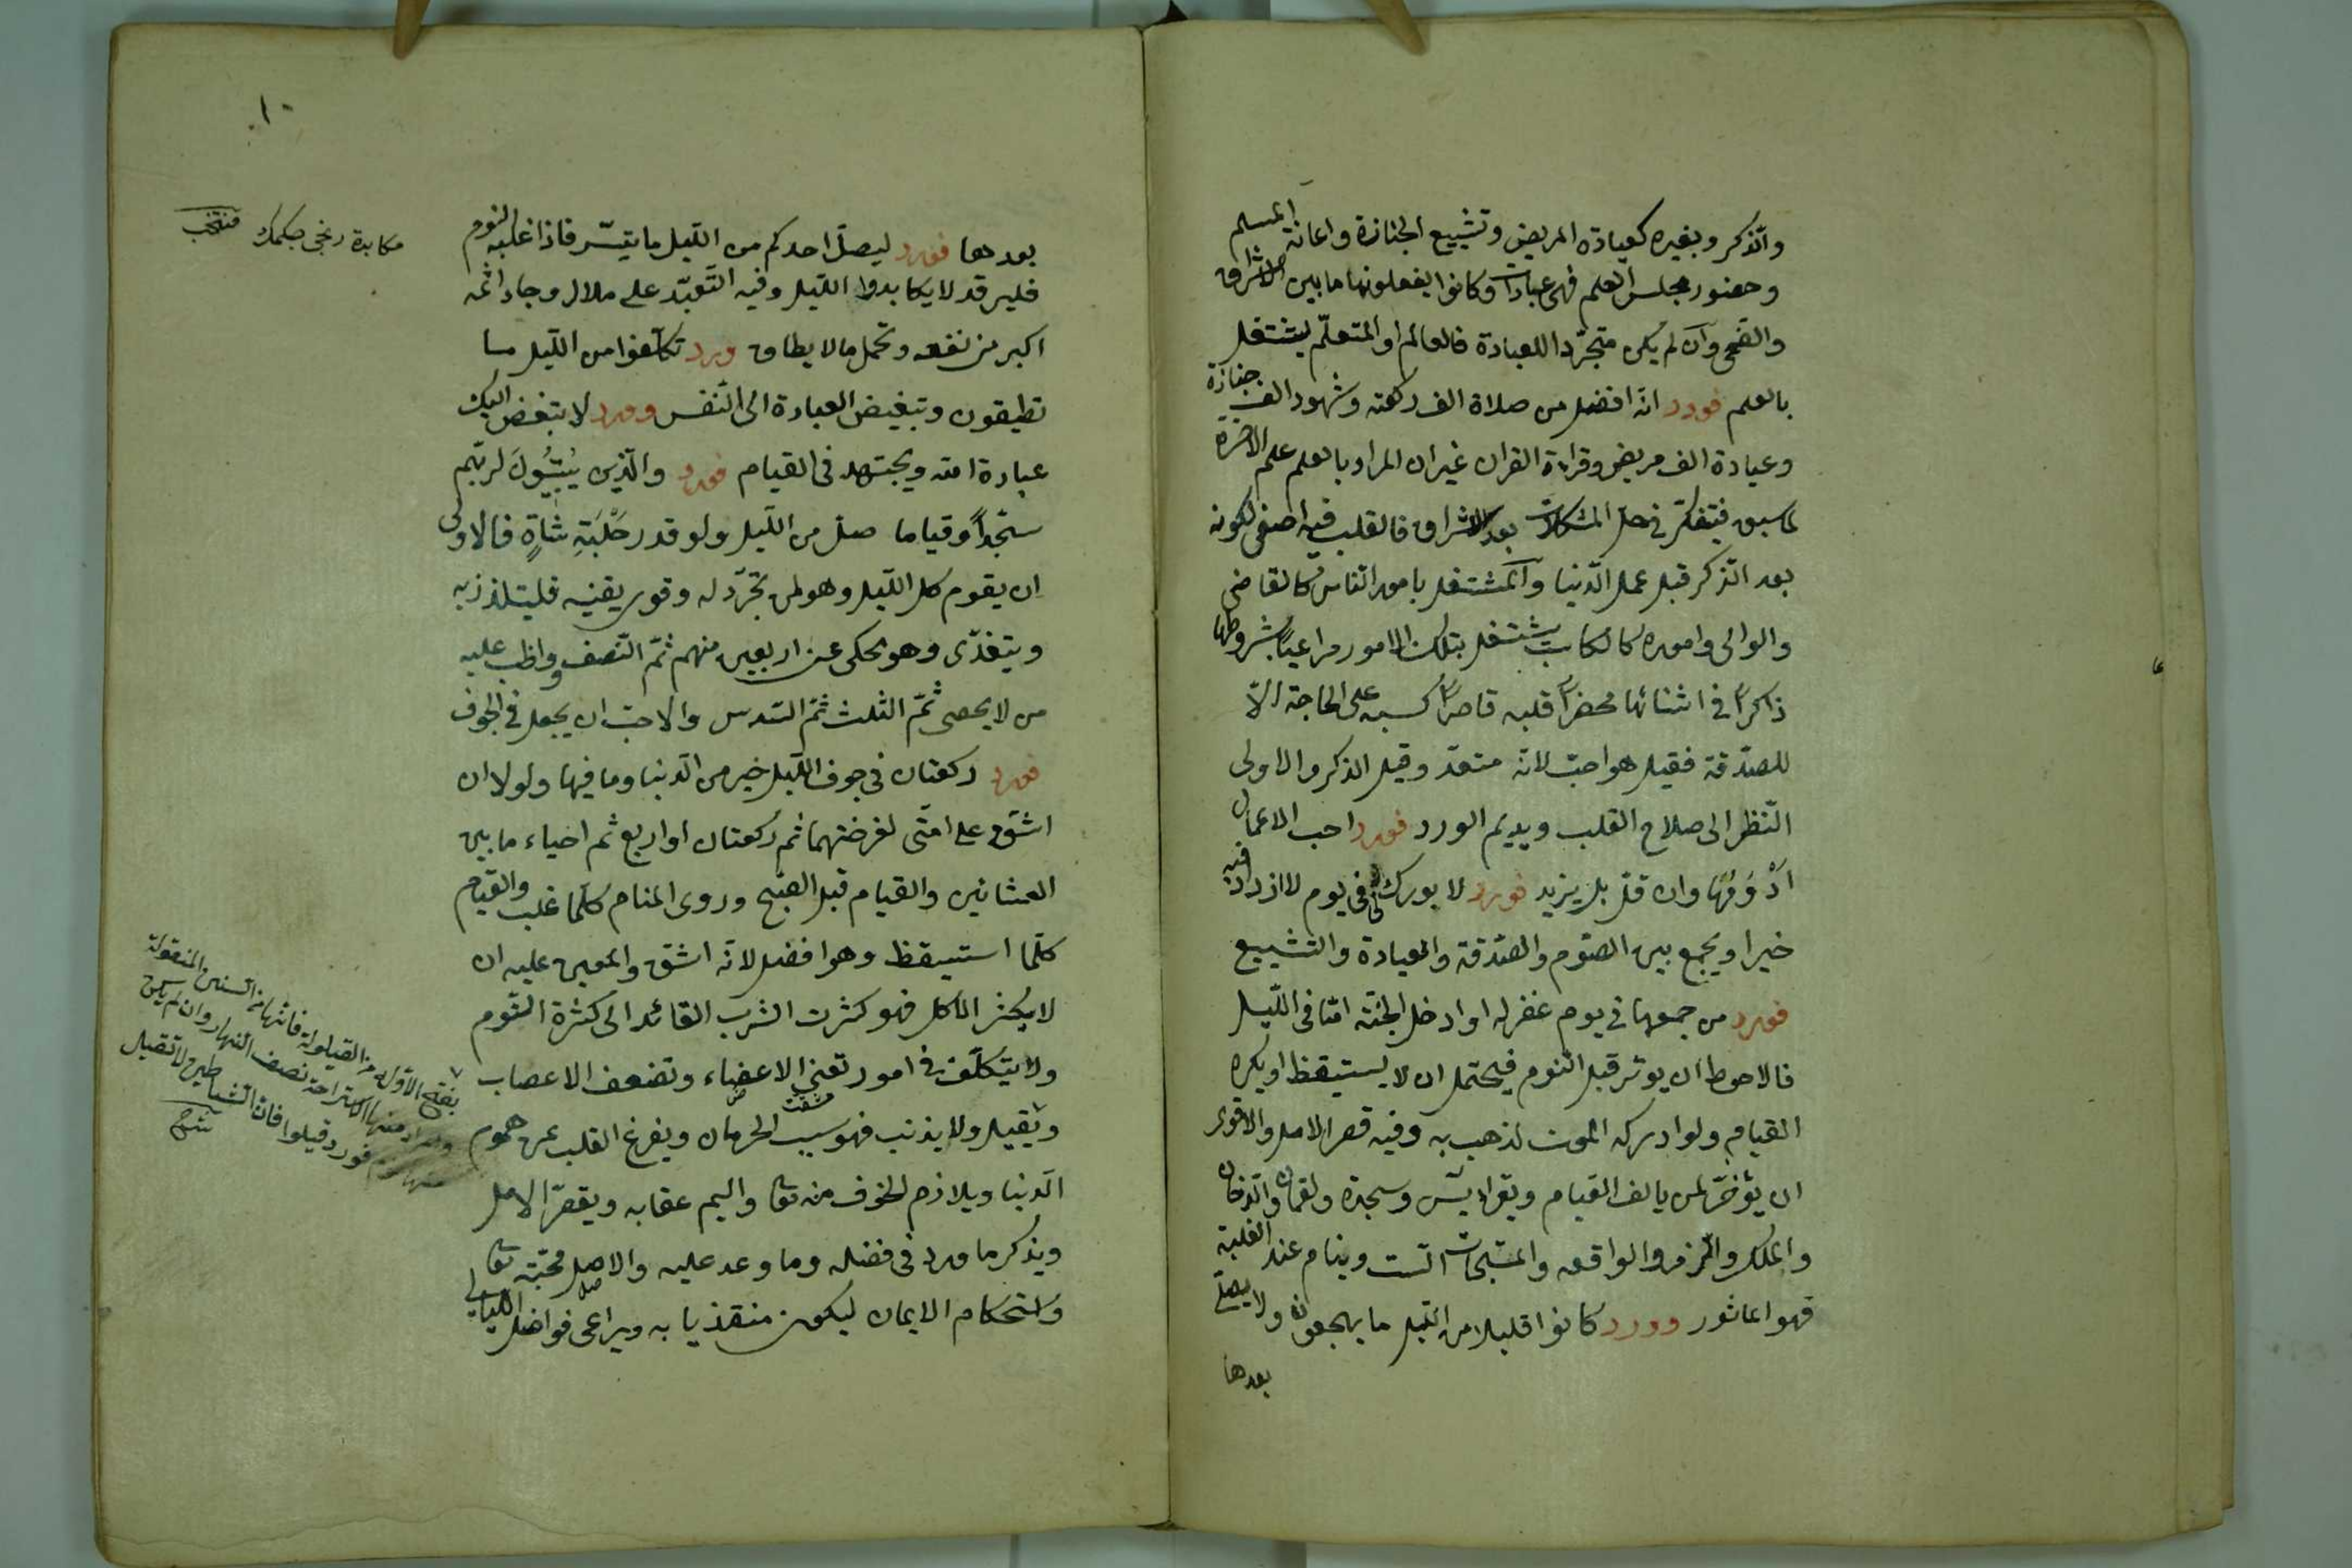 والذكر وبغيره كعيادة المريض وتشييع الجنازة واعانة المسلم
وحضور مجلس العلم فهى عبادات وكانوا يفعلونها ما بين الاشراق
والضحى وان لم يكن متجرّدا للعبادة فالعالم او المتعلّم يشتغل
بالعلم فورد انه افضل من صلاة الف ركعة وشهود الف جنازة
وعيادة الف مريض وقراءة القران غير ان المراد بالعلم علم الاخرة
كما سبق فيتفكّر فى حل المشكلات بعد الاشراق فالقلب فيه اصفى لكونه
بعد الذكر قبل عمل الدّنيا والمشتغل بامور الناس كالقاضى
والوالى واموره كالكاتب يشتغل بتلك الامور مراعيًا بشروطها
ذاكرًا فى اثنائها محضرًا قلبه قاصرًا كسبه على الحاجة الّا
للصدقة فقيل هو احبّ لانّه متعدّ وقيل الذكر والاولى
النّظر الى صلاح القلب ويديم الورد فورد احب الاعمال
ادْوَمُها وان قلّ بل يزيد فورد لا بورك لى فى يوم لا ازداد فيه
خيرا ويجمع بين الصّوم والصّدقة والعيادة والتشييع
فورد من جمعها فى يوم غفر له او ادخل الجنّة امّا فى اللّيل
فالاحوط ان يوتر قبل النّوم فيحتمل ان لا يستيقظ او يكره
القيام ولو ادركه الموت لذهب به وفيه قصر الامل والاقوى
ان يؤخّر لمن يالف القيام ويقرا يس وسجدة ولقمان والدخان
والملك والزمر والواقعه والمسبّحات الست وينام عند الغلبة
فهو الماثور وورد كانوا قليلا من اللّيل ما يهجعون ولا يصلّى
بعدها
١٠
بعدها فورد ليصلّ احدكم من اللّيل ما يتيسّر فاذا غلبه النوم
فليرقد لا يكابدوا اللّيل وفيه التّعبّد على ملال وجاء اثمه
اكبر من نفعه وتحمل ما لا يطاق ورد تكلّفوا من اللّيل ما
تطيقون وتبغيض العبادة الى النّفس وورد لا تبغض اليك
عبادة الله ويجتهد فى القيام فورد والّذين يُبَيِّتُونَ لربّهم
سجّداً وقياما صلّ من اللّيل ولو قدر حَلْبَةِ شَاةٍ فالاولى
ان يقوم كل اللّيل وهو لمن تجرّد له وقوى يقينه فليتلذذ به
ويتغذّى وهو يحكى عن اربعين منهم ثمّ النّصف وواظب عليه
من لا يحصى ثمّ الثلث ثمّ السّدس والاحبّ ان يجعل فى الجوف
فورد ركعتان فى جوف اللّيل خير من الدّنيا وما فيها ولولا ان
اشقّ على امّتى لفرضتهما ثم ركعتان او اربع ثم احياء ما بين
العشائين والقيام قبل الصّبح وروى المنام كلّما غلب والقيام
كلّما استيقظ وهو افضل لانّه اشقّ والمعين عليه ان
لا يكثر الاكل فهو كثرت الشرب القائد الى كثرة النّوم
ولا يتكلّف فى امور تعنى الاعضاء وتضعف الاعصاب
ويقيل ولا يذنب فهو سبب الحرمان ويفرغ القلب عن هموم
الدّنيا ويلازم الخوف منه تعا واليم عقابه ويقصّر الامل
ويذكر ما ورد فى فضله وما وعد عليه والاصل محبّته تعا
واستحكام الايمان ليكون متلذّيا به ويراعى فواضل الليالى
مكابدة رنجى چكمك منتخب
بفتح الاوّل من القيلولة فانّها من السنن المنقولة
منها الاستراحة نصف النهار وان لم يكن
فورد قيلوا فان الشياطين لا تقيل
شرح